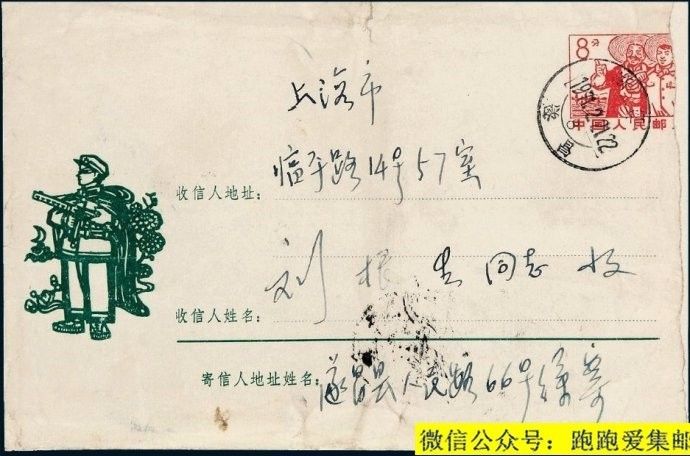 8分
中国人民邮
上海市
收信人地址：临平路14号57室
收信人姓名：刘根生同志收
寄信人地址姓名：遂昌县人民路66号 寄
微信公众号：跑跑爱集邮